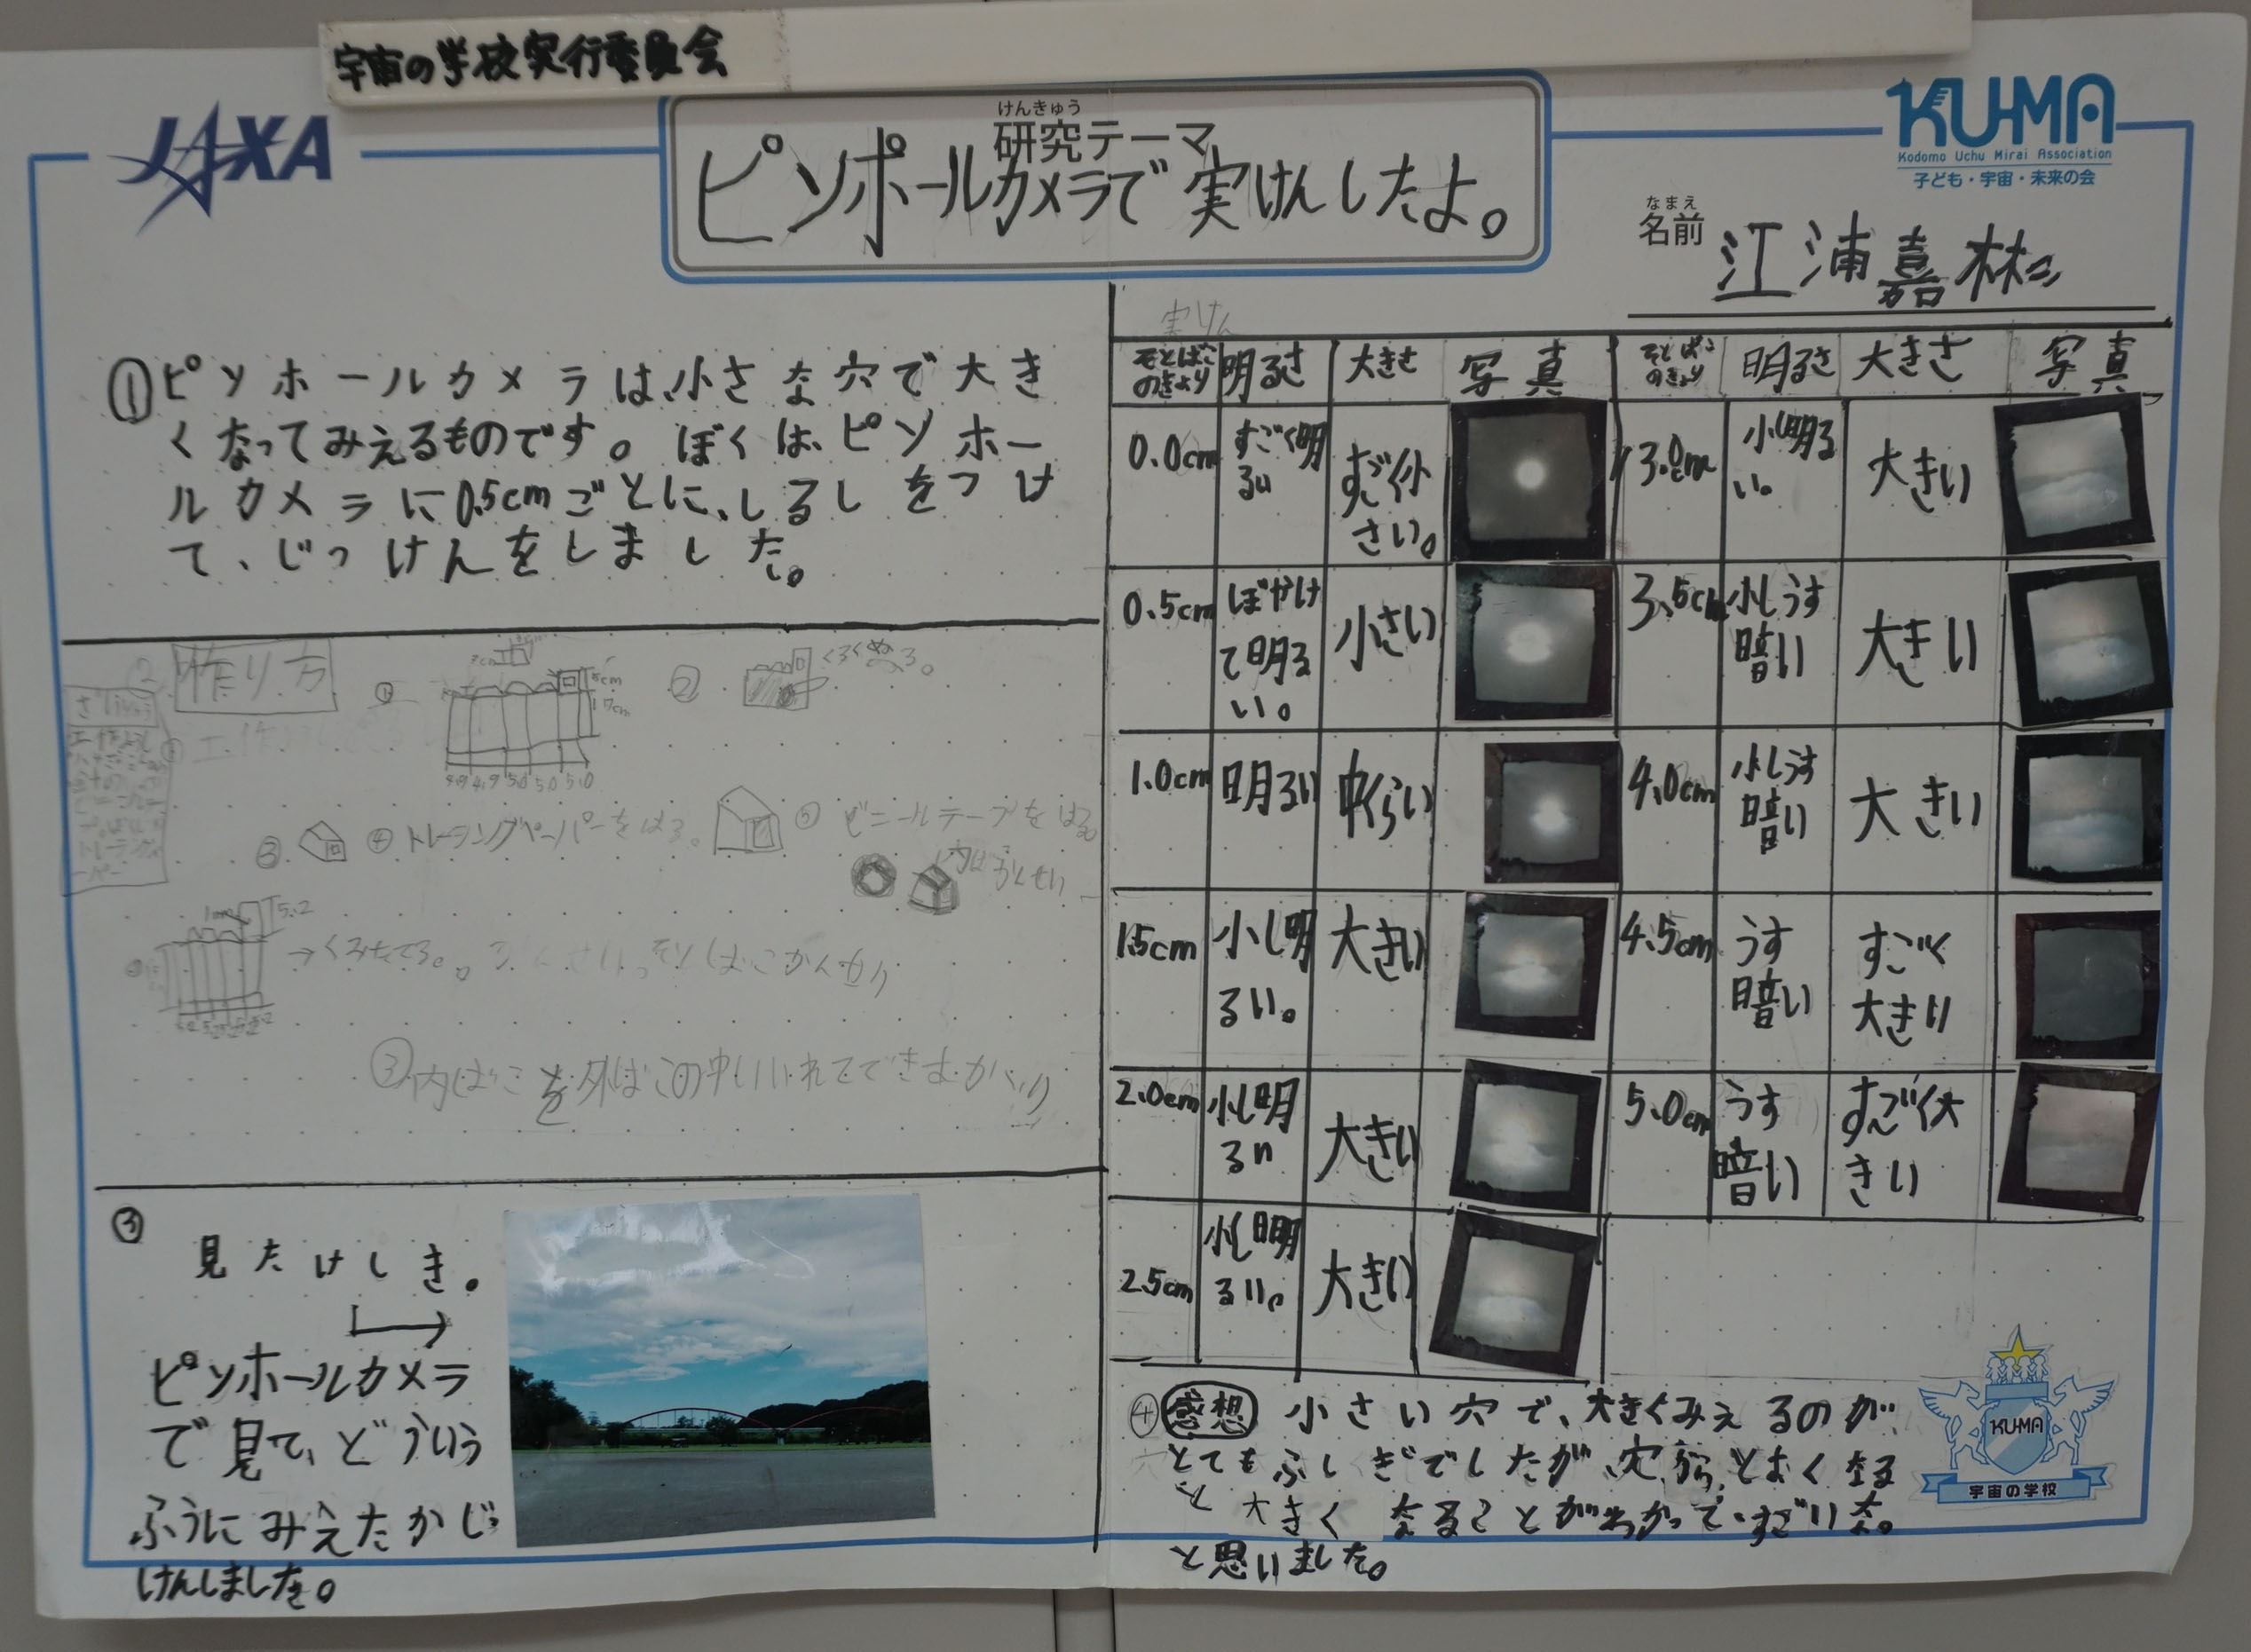 宇宙の学校実行委員会
JAXA
けんきゅう
研究テーマ
ピンホールカメラで実けんしたよ。
KU-MA
Kodomo Uchu Mirai Association
子ども・宇宙・未来の会
なまえ
名前
江浦嘉林
①ピンホールカメラは、小さな穴で大き
くなってみえるものです。ぼくは、ピンホー
ルカメラに0.5cmごとに、しるしをつけ
て、じっけんをしました。
② 作り方
① ② くろくぬる。
③ ④ トレーシングペーパーをはる。 ⑤ ビニールテープをはる。
→くみたてる。
③内ばこを外ばこの中にいれてできあがり
③
見たけしき。
ピンホールカメラ
で見て、どういう
ふうにみえたかじっ
けんしました。
実けん
そとばこのきょり 明るさ 大きさ 写真 そとばこのきょり 明るさ 大きさ 写真
0.0cm すごく明るい すごく小さい。 3.0cm 少し明るい。 大きい
0.5cm ぼやけて明るい。 小さい 3.5cm 少しうす暗い 大きい
1.0cm 明るい 中くらい 4.0cm 少しうす暗い 大きい
1.5cm 少し明るい。 大きい 4.5cm うす暗い すごく大きい
2.0cm 少し明るい 大きい 5.0cm うす暗い すごく大きい
2.5cm 少し明るい。 大きい
④感想 小さい穴で、大きくみえるのが、
とてもふしぎでしたが、穴からとおくなる
と大きくなることがわかって、すごいな。
と思いました。
KU-MA
宇宙の学校